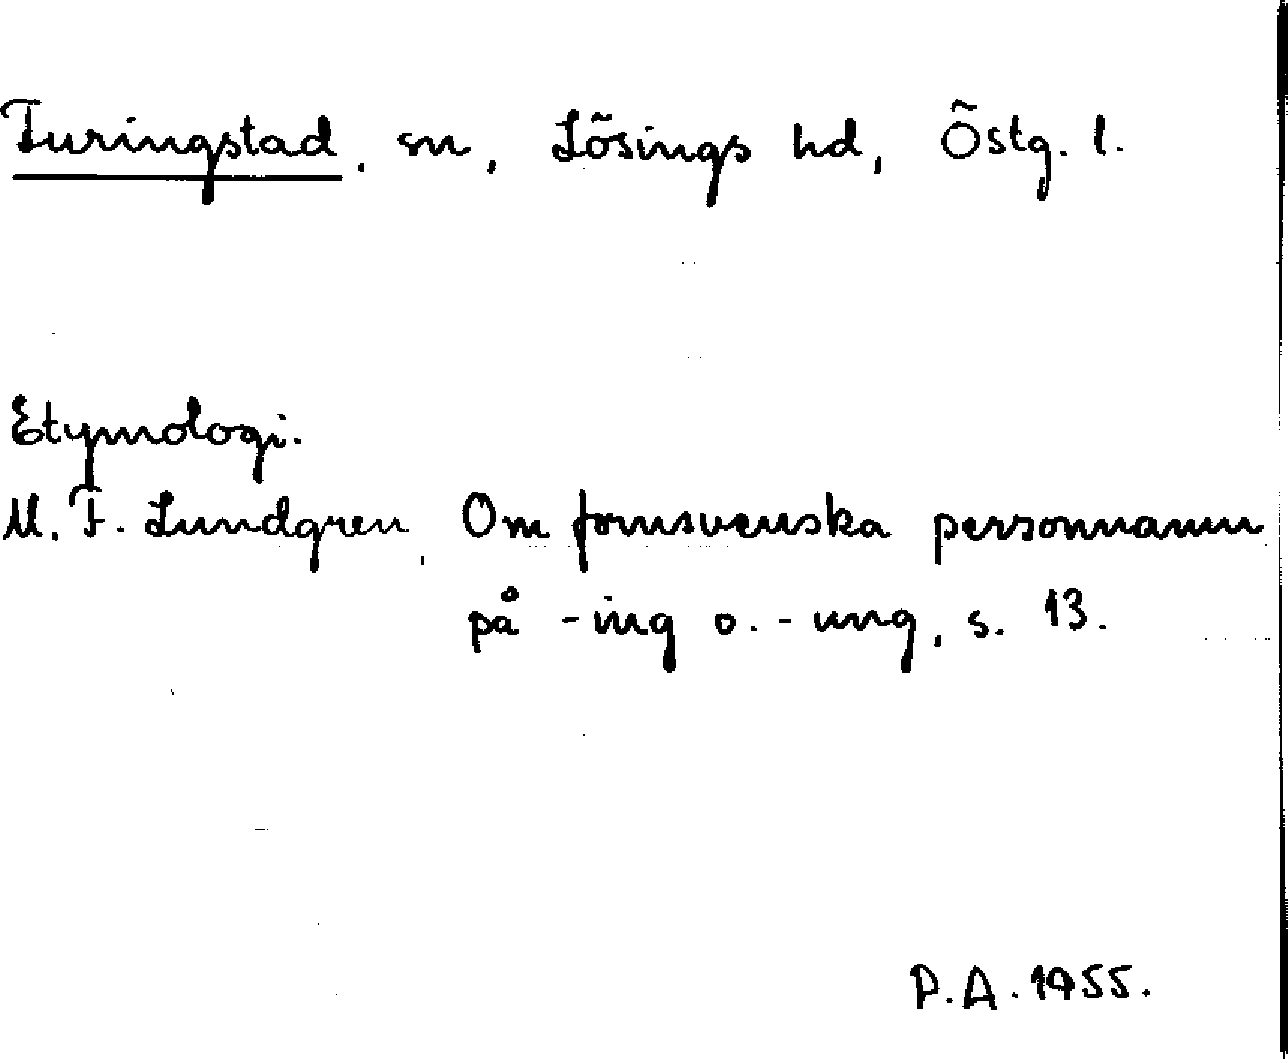 Furingstad, sn, Lösings hd, Östg. l.
Etymologi.
M. F. Lundgren, Om fornsvenska personnamn
på -ing o. -ung, s. 13.
P.A. 1955.